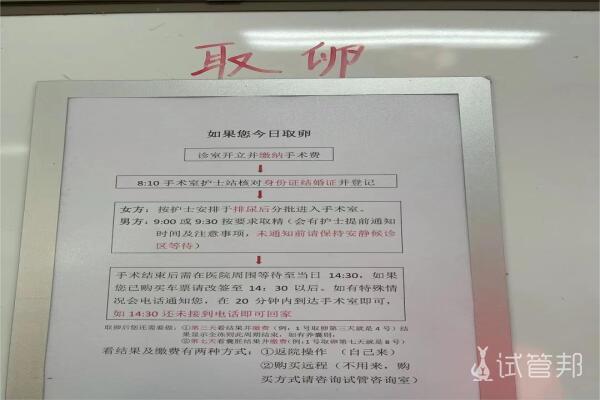 取卵
如果您今日取卵
诊室开立并缴纳手术费
8:10 手术室护士站核对身份证结婚证并登记
女方：按护士安排于排尿后分批进入手术室。
男方：9:00 或 9:30 按要求取精（会有护士提前通知
时间及注意事项，未通知前请保持安静候诊
区等待）
手术结束后需在医院周围等待至当日 14:30，如果
您已购买车票请改签至 14：30 以后。如有特殊情
况会电话通知您，在 20 分钟内到达手术室即可，
如 14:30 还未接到电话即可回家
取卵后您还需要做：①第三天看结果并缴费（例：1号取卵第三天就是4号）结
果显示全冻则此周期结束，如有养囊则：
②第七天看囊胚结果并缴费（例：1号取卵第七天就是8号）
看结果及缴费有两种方式：①返院操作 （自己来）
②购买远程（不用来，购
买方式请咨询试管咨询室）
试管邦